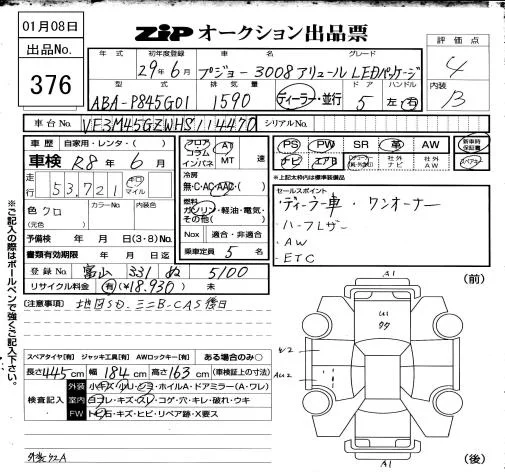 01月08日
出品No.
376
ZiP オークション出品票
評価点
4
内装
B
年式 初年度登録 車名 グレード
29年6月 プジョー3008アリュール LEDパッケージ
型式 排気量 ドア ハンドル
ABA-P845G01 1590 ディーラー・並行 5 左・右
車台No. VF3M45GZWHS114470 シリアルNo.
車歴 自家用・レンタ・( )
車検 R8年6月
走行 53,721 キロ マイル
色 クロ
(元色)
カラーNo. 内装色
予備検 年 月 日(3・8)No.
書類有効期限 年 月 日迄
登録No. 富山 331 ぬ 5100
リサイクル料金 有(¥18,930) 未
フロア コラム インパネ
AT MT 速
冷房
無・C・AC・AAC・( )
燃料
ガソリン・軽油・電気・その他( )
Nox 適合・非適合
乗車定員 5 名
PS PW SR 革 AW
新車時保証書
ナビ エアB 社外ナビ 社外AW
※上記太枠内は標準装備品
セールスポイント
ディーラー車・ワンオーナー
・ハーフレザー
・AW
・ETC
(注意事項) 地図SD、ミニB-CAS後日
スペアタイヤ[有] ジャッキ工具[有] AWロックキー[有] ある場合のみ○
長さ445cm 幅184cm 高さ163cm (車検証上の寸法)
検査記入
外装 小キズ・小U・ハゴミ・ホイルA・ドアミラー(A・ワレ)
室内 ヨゴレ・キズ・スレ・コゲ・穴・キレ・破れ・ウキ
FW トビ石・キズ・ヒビ・リペア跡・X要ス
※ご記入の際はボールペンで強くご記入下さい。
(前)
A1
U1
A1
(後)